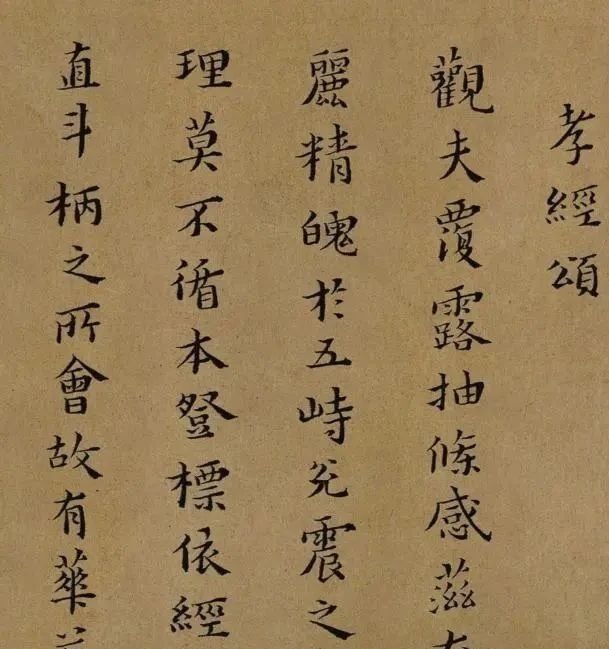 孝經頌
觀夫覆露抽條感滋
麗精魄於五峙兖震之
理莫不循本登標依經
直斗柄之所會故有華